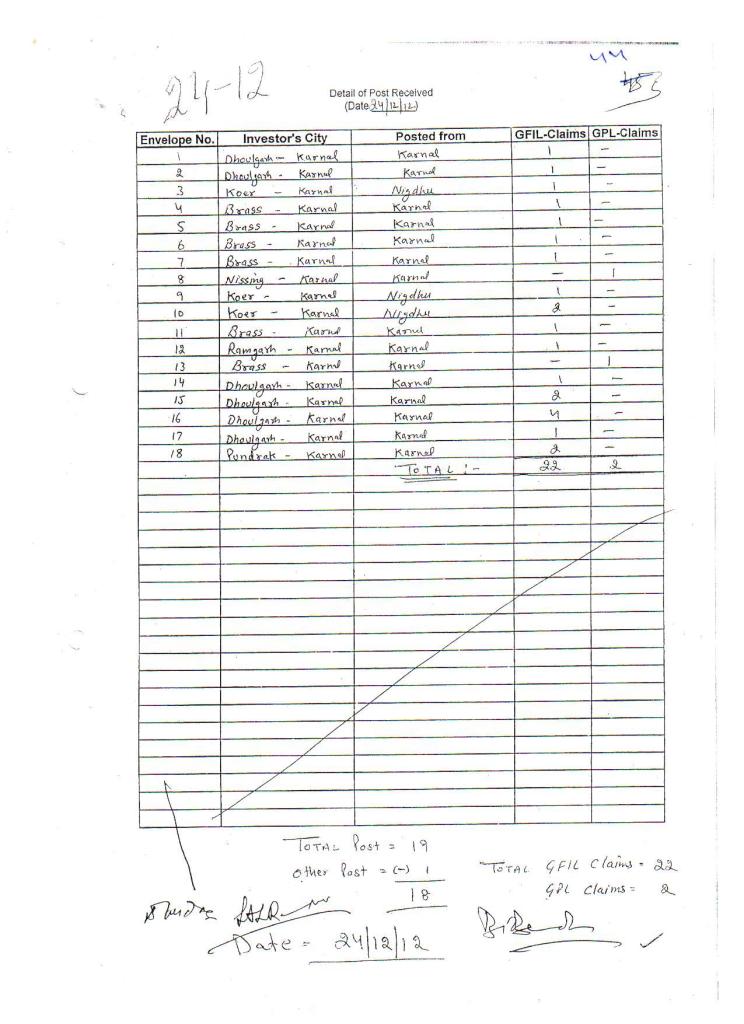 44
24-12
Detail of Post Received
(Date 24/12/12)
Envelope No. Investor's City Posted from GFIL-Claims GPL-Claims
1 Dhoulgarh - Karnal Karnal 1 -
2 Dhoulgarh - Karnal Karnal 1 -
3 Koer - Karnal Nigdhu 1 -
4 Brass - Karnal Karnal 1 -
5 Brass - Karnal Karnal 1 -
6 Brass - Karnal Karnal 1 -
7 Brass - Karnal Karnal 1 -
8 Nissing - Karnal Karnal - 1
9 Koer - Karnal Nigdhu 1 -
10 Koer - Karnal Nigdhu 2 -
11 Brass - Karnal Karnal 1 -
12 Ramgarh - Karnal Karnal 1 -
13 Brass - Karnal Karnal - 1
14 Dhoulgarh - Karnal Karnal 1 -
15 Dhoulgarh - Karnal Karnal 2 -
16 Dhoulgarh - Karnal Karnal 4 -
17 Dhoulgarh - Karnal Karnal 1 -
18 Pundrak - Karnal Karnal 2 -
TOTAL :- 22 2
TOTAL Post = 19
other Post = (-) 1
18
TOTAL GFIL Claims = 22
GPL Claims = 2
Date = 24/12/12